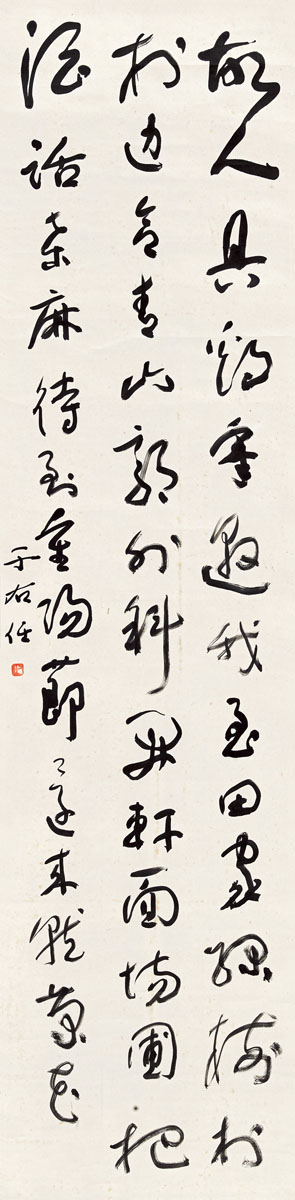 故人具鷄黍邀我至田家綠樹村
村邊合青山郭外斜開軒面場圃把
酒話桑麻待到重陽節還來就菊花
于右任